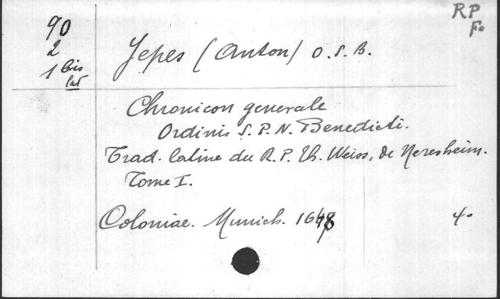 90
2
1 bis
lat
RP
Fo
Jepes (Anton) O.S.B.
Chronicon generale
Ordinis S.P.N. Benedicti.
Trad. latine du R.P. Th. Weiss, de Neresheim.
Tome I.
Coloniae. Munich. 1648 4o